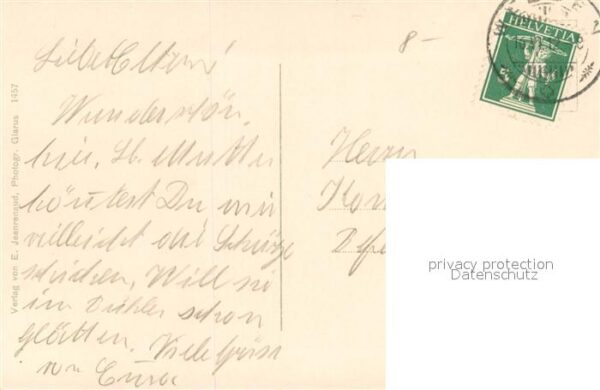 Liebe Eltern!
Wunderschön
hier. Lb. Mutter
könntest Du mir
vielleicht die Schürze
schicken. Will sie
im Bühler schon
glätten. Viele Grüsse
von Eurer
8-
HELVETIA
5
Herrn
privacy protection
Datenschutz
Verlag von E. Jeanrenaud, Photogr. Glarus 1457